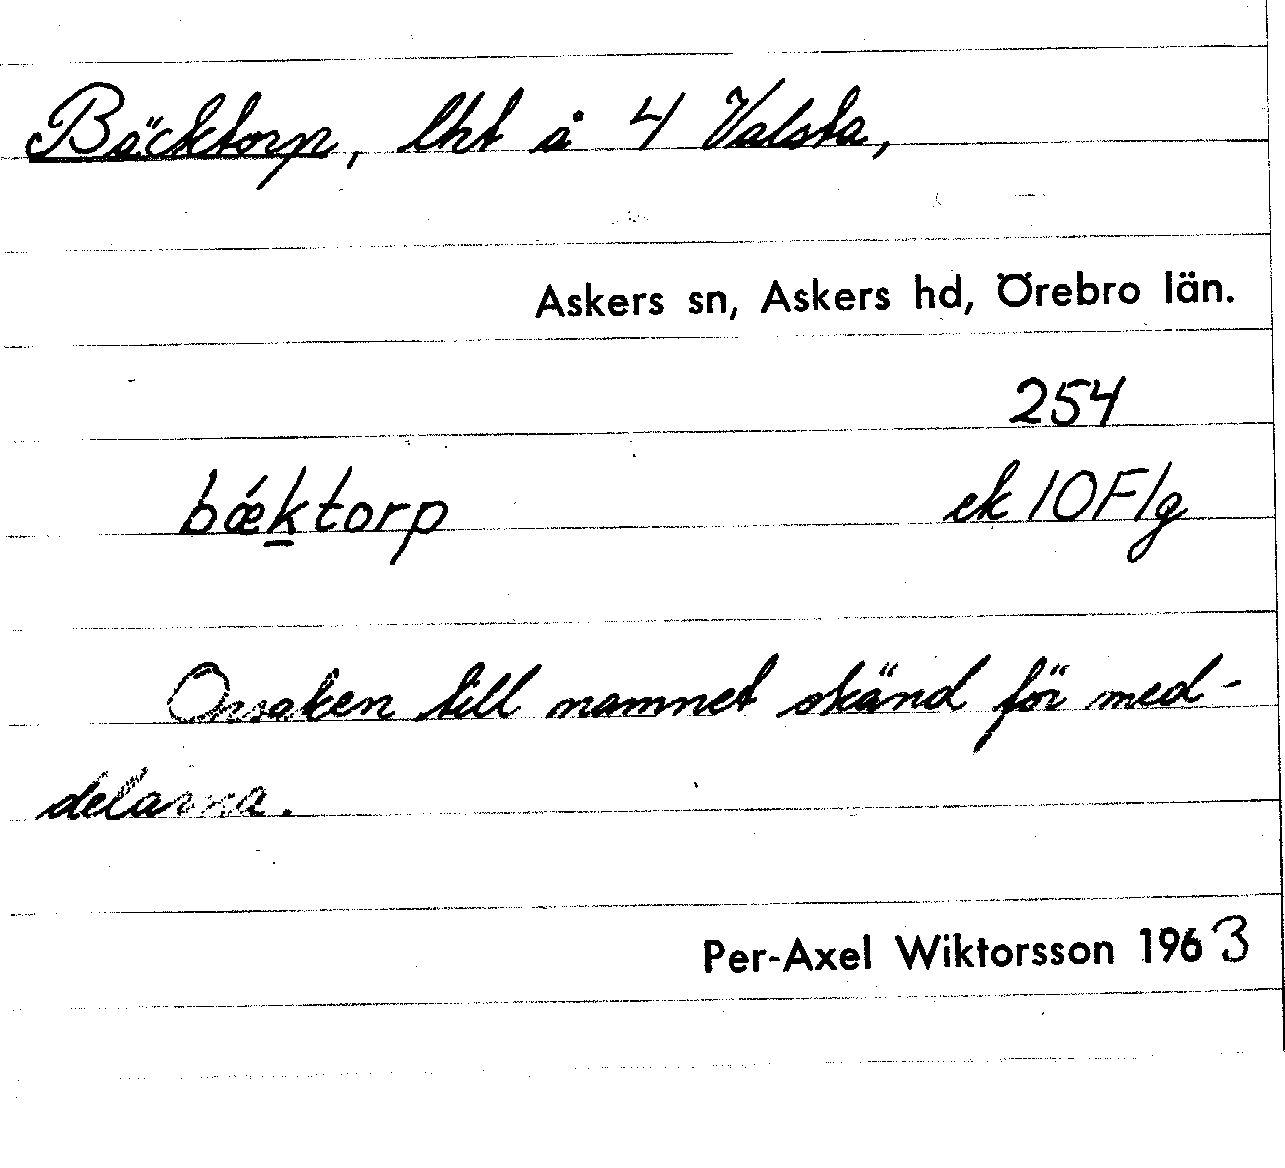 Bäcktorp, lht å 4 Valsta,
Askers sn, Askers hd, Örebro län.
254
bǽk̠torp ek 10F1g
Orsaken till namnet okänd för med-
delarna.
Per-Axel Wiktorsson 1963